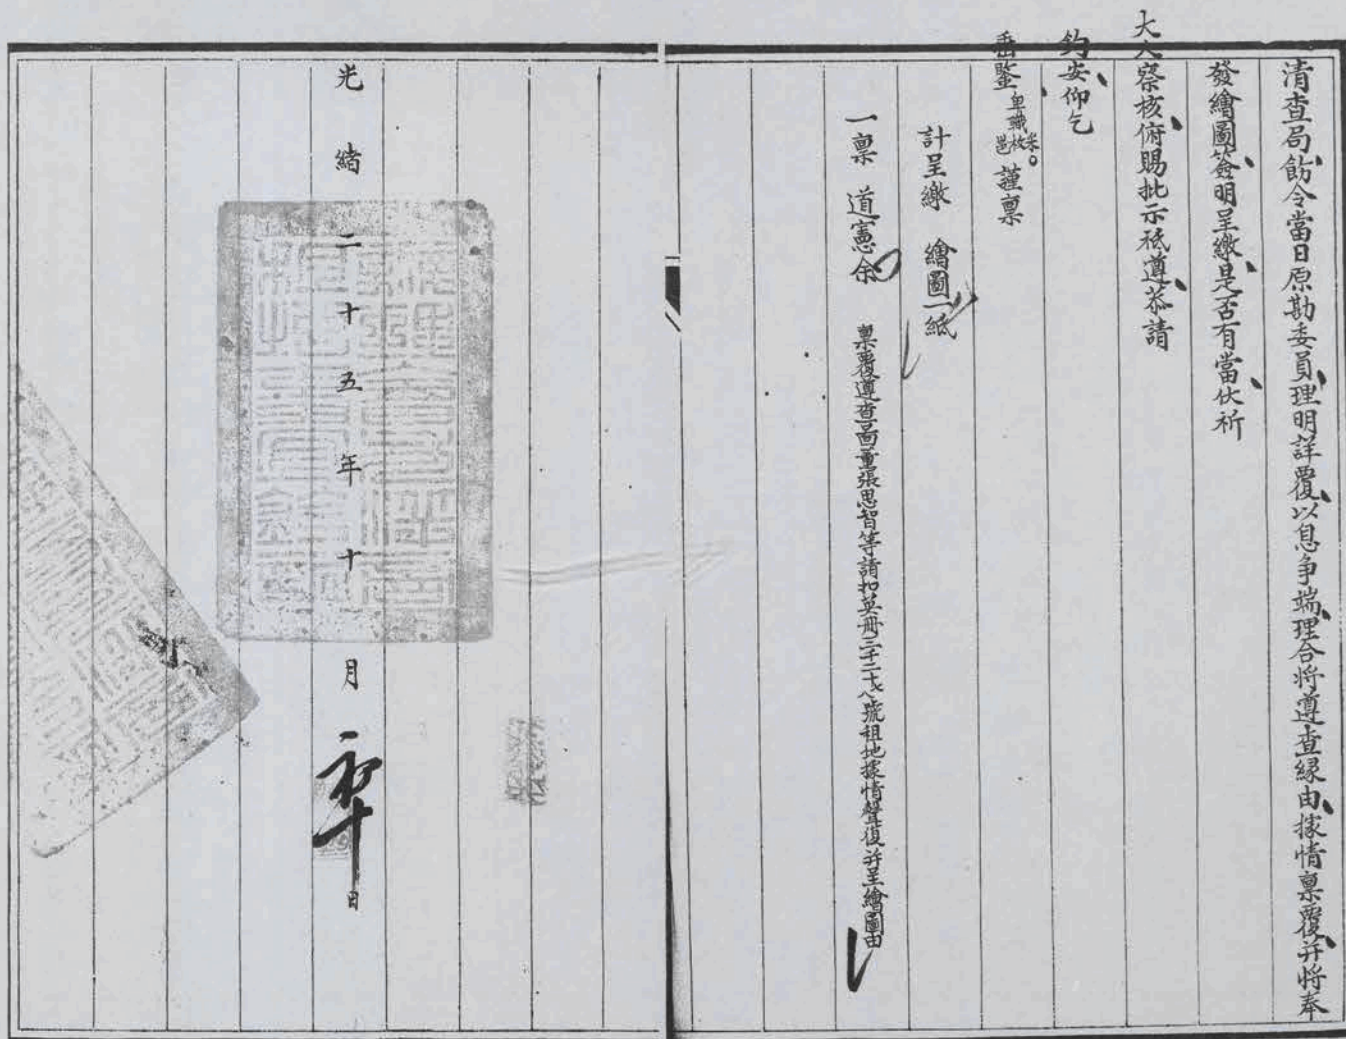 清查局飭令當日原勘委員理明詳覆以息争端理合将遵查緣由據情稟覆并将奉
發繪圖簽明呈繳是否有當伏祈
大人察核俯賜批示祗遵恭請
鈞安仰乞
垂鑒卑職 謹禀
計呈繳 繪圖一紙
一禀 道憲余 禀覆遵查 張思智等請扣英冊二千二 八號租地據情聲復并呈繪圖由
光緒二十五年十 月 初十 日